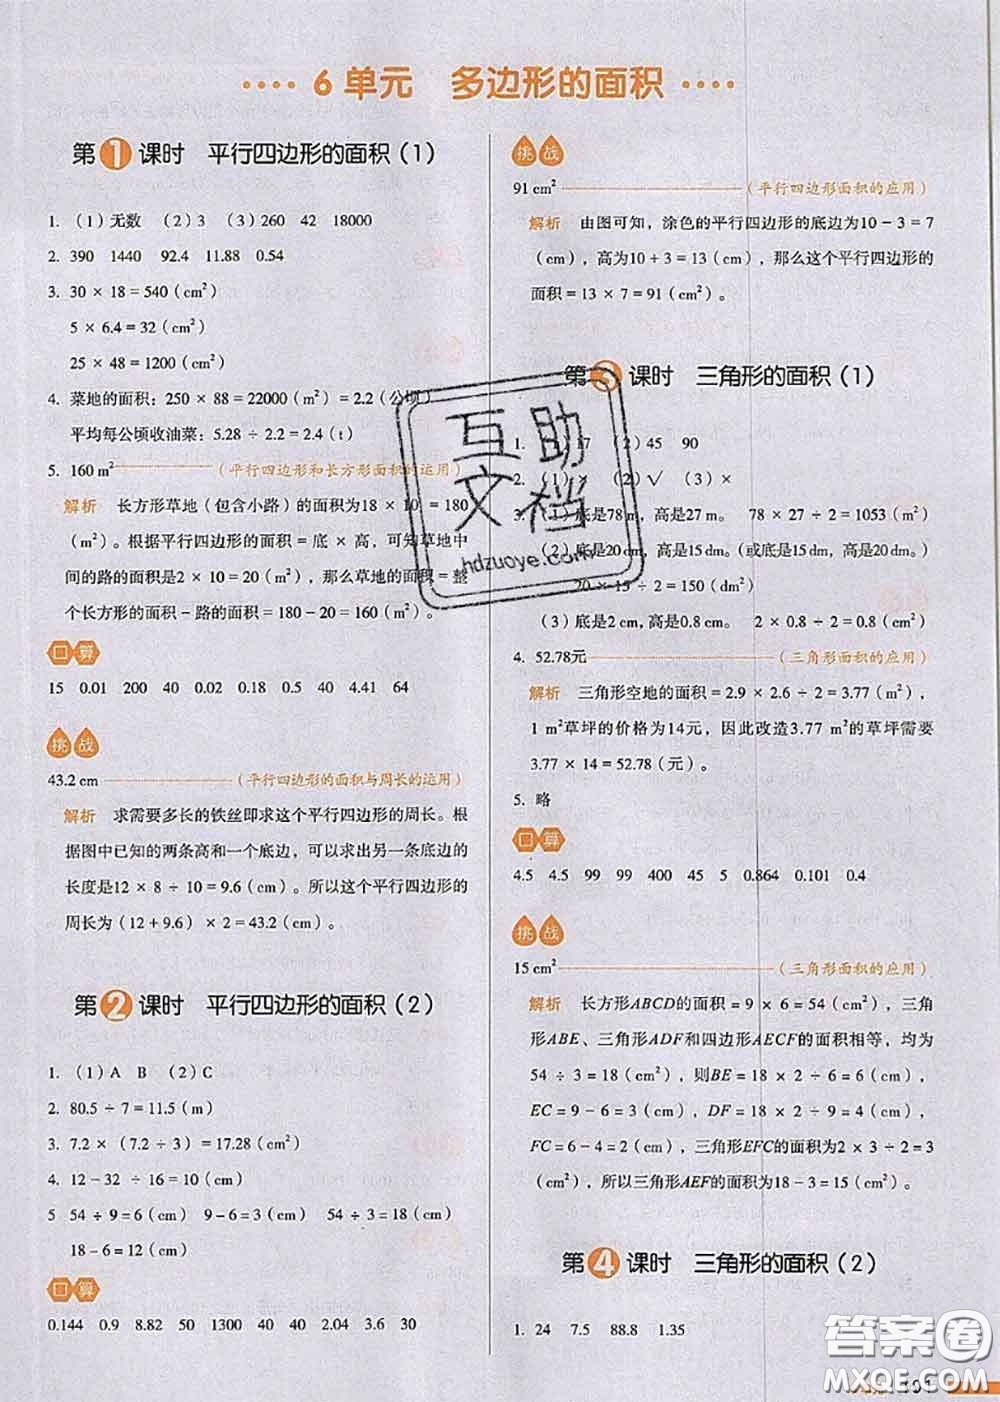 6 单元 多边形的面积
第1课时 平行四边形的面积（1）
1. （1）无数 （2）3 （3）260 42 18000
2. 390 1440 92.4 11.88 0.54
3. 30 × 18 = 540（cm²）
5 × 6.4 = 32（cm²）
25 × 48 = 1200（cm²）
4. 菜地的面积：250 × 88 = 22000（m²）= 2.2（公顷）
平均每公顷收油菜：5.28 ÷ 2.2 = 2.4（t）
5. 160 m² （平行四边形和长方形面积的运用）
解析 长方形草地（包含小路）的面积为18 × 10 = 180
（m²）。根据平行四边形的面积 = 底 × 高，可知草地中
间的路的面积是2 × 10 = 20（m²），那么草地的面积 = 整
个长方形的面积 - 路的面积 = 180 - 20 = 160（m²）。
口算
15 0.01 200 40 0.02 0.18 0.5 40 4.41 64
挑战
43.2 cm （平行四边形的面积与周长的运用）
解析 求需要多长的铁丝即求这个平行四边形的周长。根
据图中已知的两条高和一个底边，可以求出另一条底边的
长度是12 × 8 ÷ 10 = 9.6（cm）。所以这个平行四边形的
周长为（12 + 9.6）× 2 = 43.2（cm）。
第2课时 平行四边形的面积（2）
1. （1）A B （2）C
2. 80.5 ÷ 7 = 11.5（m）
3. 7.2 ×（7.2 ÷ 3）= 17.28（cm²）
4. 12 - 32 ÷ 16 = 10（cm）
5 54 ÷ 9 = 6（cm） 9 - 6 = 3（cm） 54 ÷ 3 = 18（cm）
18 - 6 = 12（cm）
口算
0.144 0.9 8.82 50 1300 40 40 2.04 3.6 30
挑战
91 cm² （平行四边形面积的应用）
解析 由图可知，涂色的平行四边形的底边为10 - 3 = 7
（cm），高为10 + 3 = 13（cm），那么这个平行四边形的
面积 = 13 × 7 = 91（cm²）。
第3课时 三角形的面积（1）
1. （1）17 （2）45 90
2. （1）× （2）√ （3）×
3. （1）底是78 m，高是27 m。 78 × 27 ÷ 2 = 1053（m²）
（2）底是20 dm，高是15 dm。（或底是15 dm，高是20 dm。）
20 × 15 ÷ 2 = 150（dm²）
（3）底是2 cm，高是0.8 cm。 2 × 0.8 ÷ 2 = 0.8（cm²）
4. 52.78元 （三角形面积的应用）
解析 三角形空地的面积 = 2.9 × 2.6 ÷ 2 = 3.77（m²），
1 m²草坪的价格为14元，因此改造3.77 m²的草坪需要
3.77 × 14 = 52.78（元）。
5. 略
口算
4.5 4.5 99 99 400 45 5 0.864 0.101 0.4
挑战
15 cm² （三角形面积的应用）
解析 长方形ABCD的面积 = 9 × 6 = 54（cm²），三角
形ABE、三角形ADF和四边形AECF的面积相等，均为
54 ÷ 3 = 18（cm²），则BE = 18 × 2 ÷ 6 = 6（cm），
EC = 9 - 6 = 3（cm），DF = 18 × 2 ÷ 9 = 4（cm），
FC = 6 - 4 = 2（cm），三角形EFC的面积为2 × 3 ÷ 2 = 3
（cm²），所以三角形AEF的面积为18 - 3 = 15（cm²）。
第4课时 三角形的面积（2）
1. 24 7.5 88.8 1.35
互助
文档
hdzuoye.com
答案圈
MXQE.COM